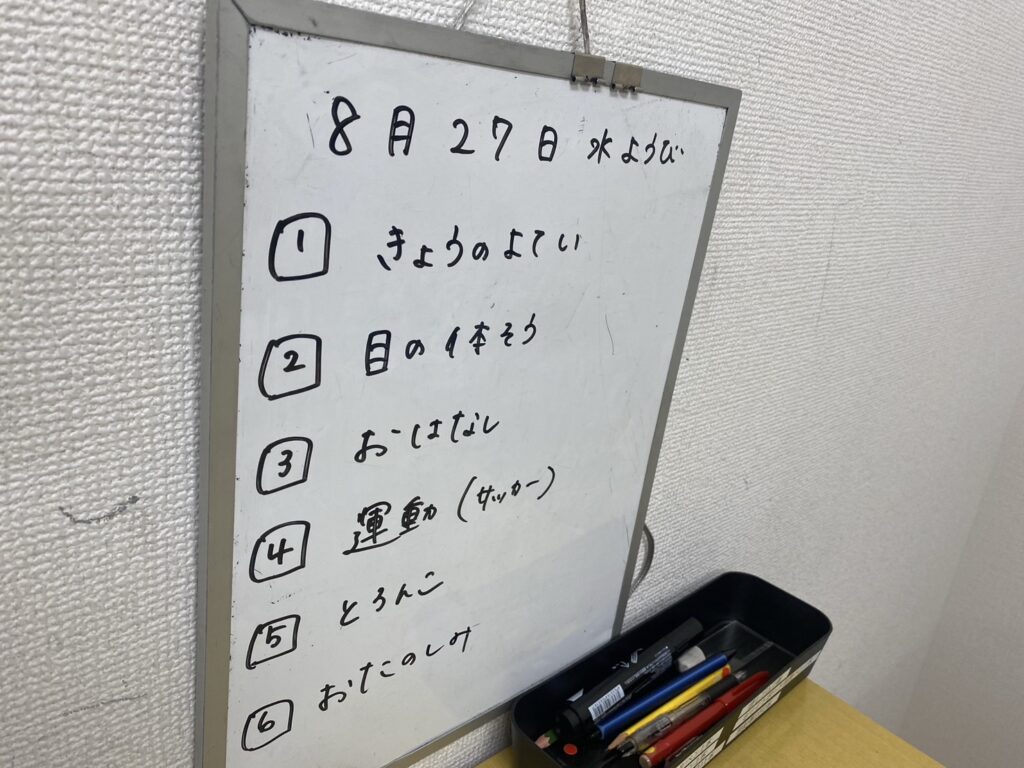 8月27日 水ようび
1 きょうのよてい
2 目の体そう
3 おはなし
4 運動(サッカー)
5 とろんこ
6 おたのしみ